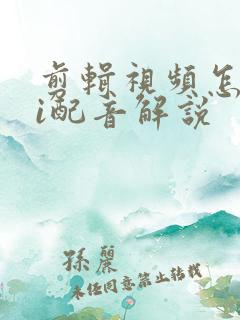 剪輯視頻怎
i配音解說
孫麗
未任同意禁止转载